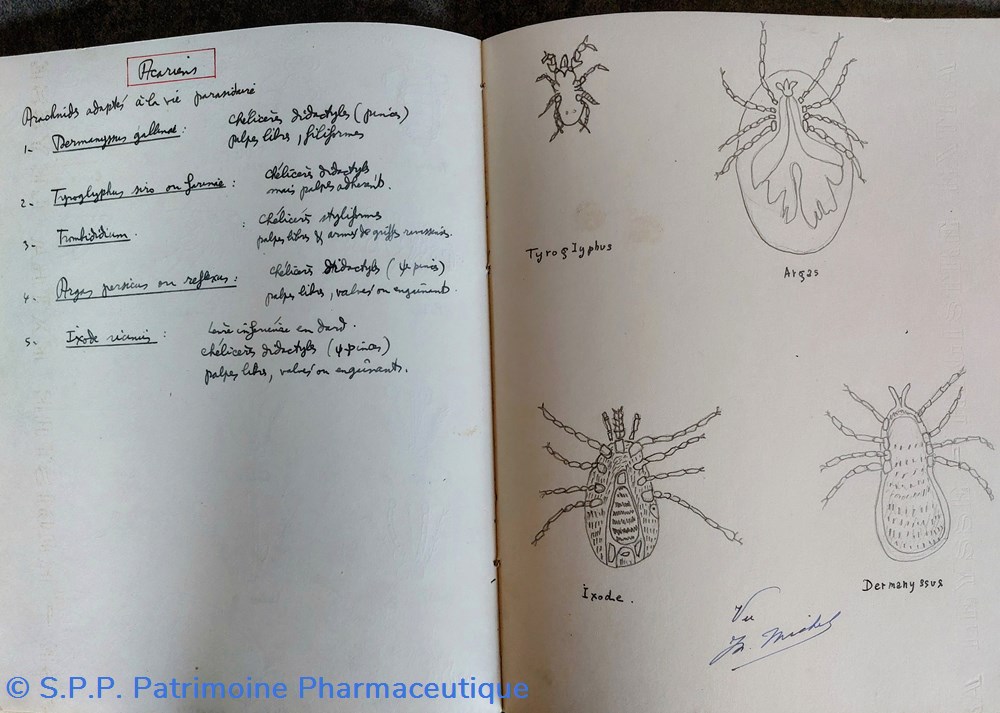 Acariens
Arachnids adaptés à la vie parasitaire
1- Dermanyssus gallinae : chélicères didactyles (pinces)
palpes libres, filiformes
2- Tyroglyphus siro ou farinae : chélicères didactyles,
mais palpes adhérents.
3- Trombididium : chélicères styliformes
palpes libres & armés de griffes
4- Argas persicus ou reflexus : chélicères didactyles (ψ pinces)
palpes libres, valvés ou engainants.
5- Ixode ricinus : lèvre inférieure en dard.
chélicères didactyles (ψ.pinces)
palpes libres, valvés ou engainants.
Tyroglyphus
Argas
Ixode.
Dermanyssus
Vu
© S.P.P. Patrimoine Pharmaceutique